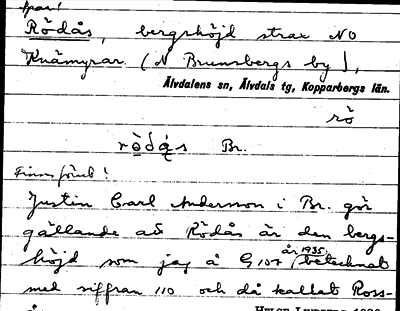 Rödås, bergshöjd strax NO
Knämyrar (N Brunnsbergs by),
Älvdalens sn, Älvdals tg, Kopparbergs län.
rö
rödås Br.
Finns förut!
Justin Carl Andersson i Br. gör
gällande att Rödås är den bergs-
höjd som jag å G 107 år 1935 betecknat
med siffran 110 och då kallat Ross-